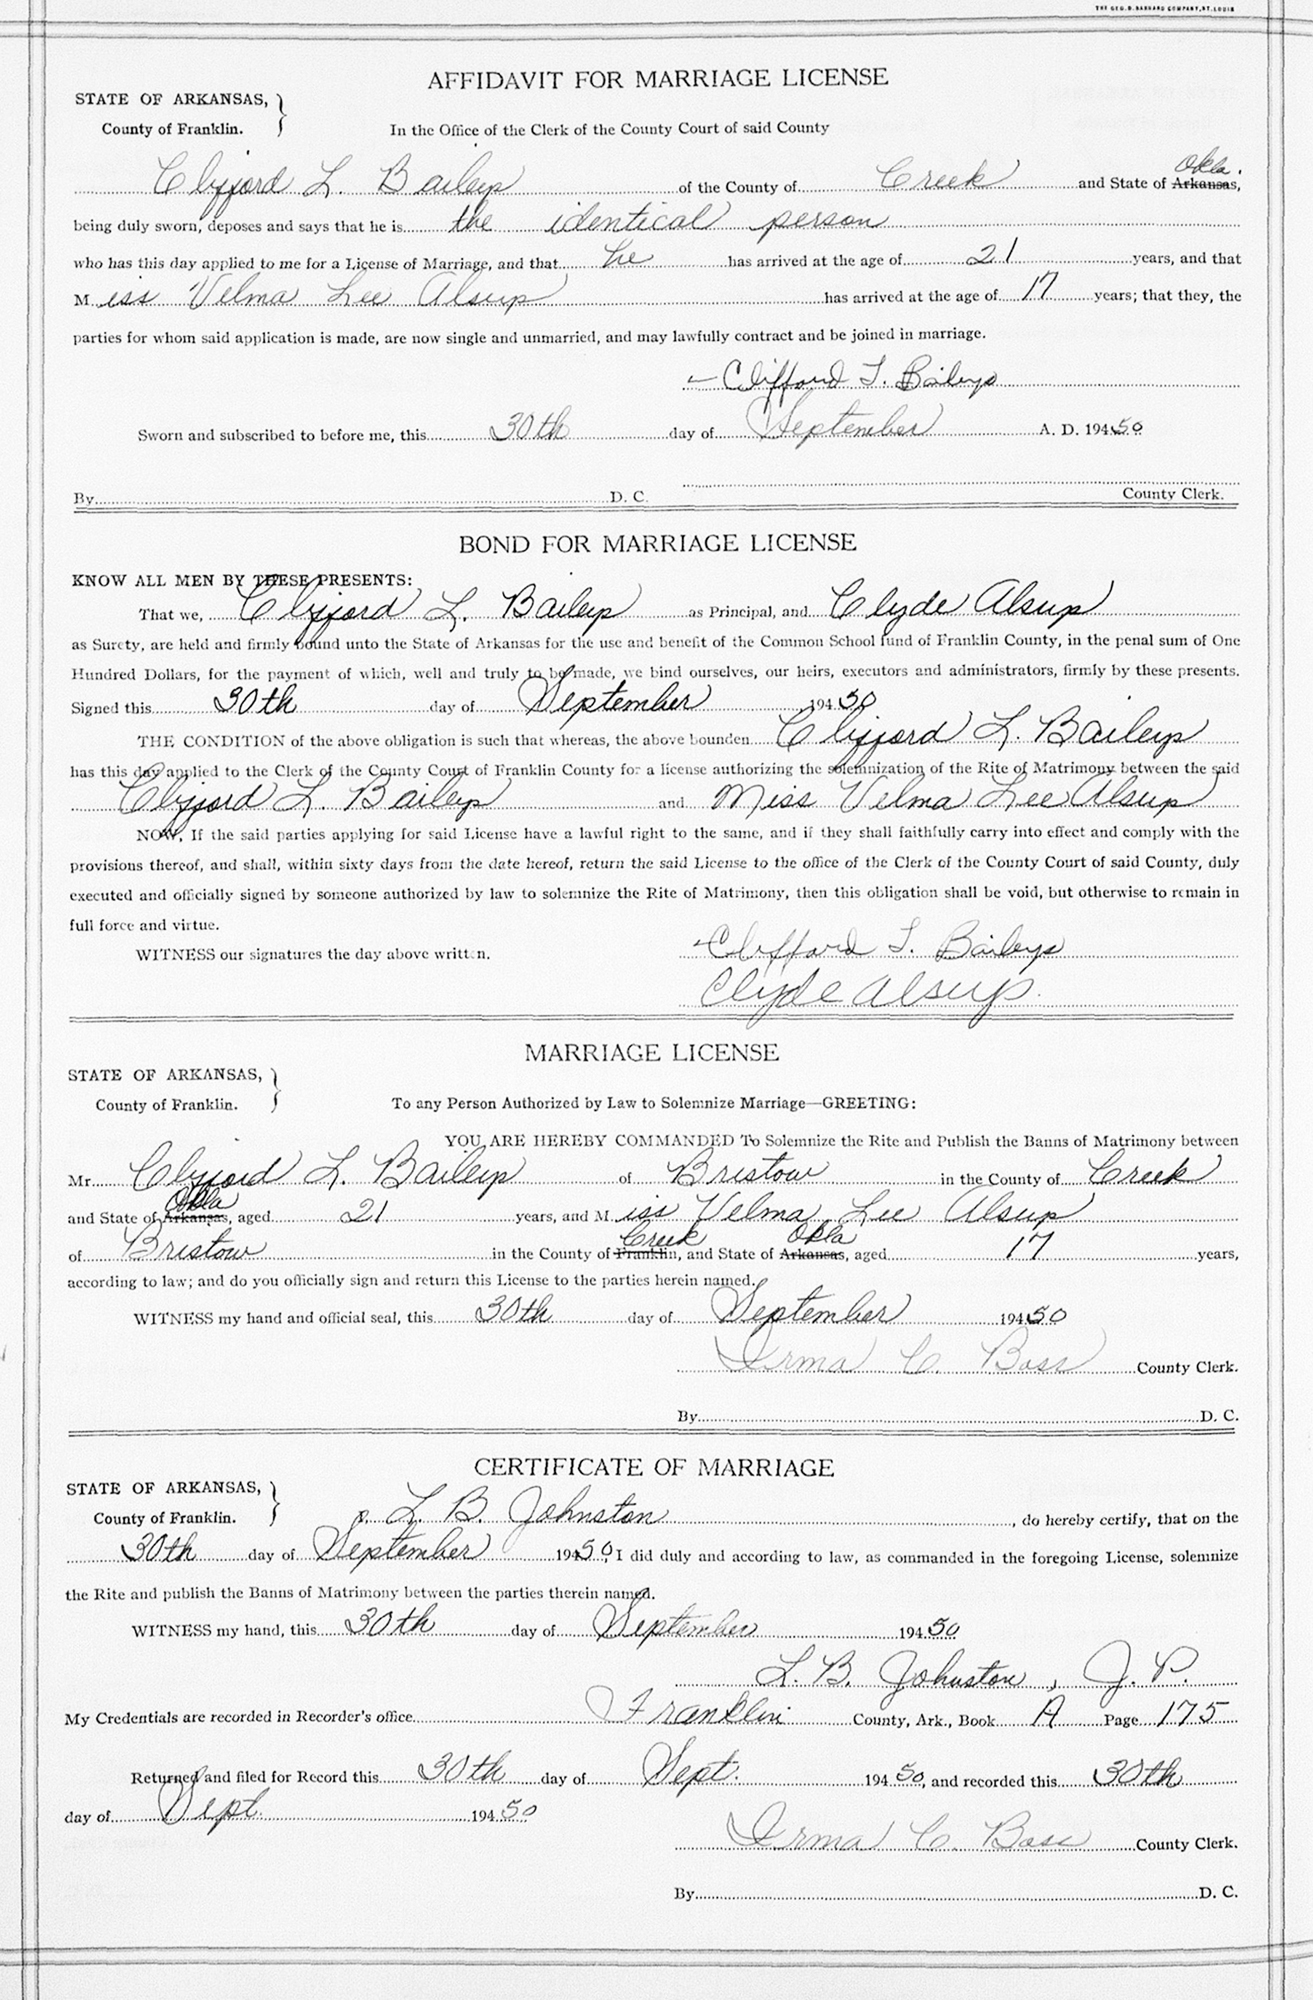 THE GEO. D. BARNARD COMPANY, ST. LOUIS
AFFIDAVIT FOR MARRIAGE LICENSE
STATE OF ARKANSAS,
County of Franklin.
In the Office of the Clerk of the County Court of said County
Clifford L. Bailey of the County of Creek and State of Arkansas, Okla.
being duly sworn, deposes and says that he is the identical person
who has this day applied to me for a License of Marriage, and that he has arrived at the age of 21 years, and that
Miss Velma Lee Alsup has arrived at the age of 17 years; that they, the
parties for whom said application is made, are now single and unmarried, and may lawfully contract and be joined in marriage.
Clifford L. Bailey
Sworn and subscribed to before me, this 30th day of September A. D. 19450
By D. C. County Clerk.
BOND FOR MARRIAGE LICENSE
KNOW ALL MEN BY THESE PRESENTS:
That we, Clifford L. Bailey as Principal, and Clyde Alsup
as Surety, are held and firmly bound unto the State of Arkansas for the use and benefit of the Common School fund of Franklin County, in the penal sum of One
Hundred Dollars, for the payment of which, well and truly to be made, we bind ourselves, our heirs, executors and administrators, firmly by these presents.
Signed this 30th day of September 19450
THE CONDITION of the above obligation is such that whereas, the above bounden Clifford L. Bailey
has this day applied to the Clerk of the County Court of Franklin County for a license authorizing the solemnization of the Rite of Matrimony between the said
Clifford L. Bailey and Miss Velma Lee Alsup
NOW, If the said parties applying for said License have a lawful right to the same, and if they shall faithfully carry into effect and comply with the
provisions thereof, and shall, within sixty days from the date hereof, return the said License to the office of the Clerk of the County Court of said County, duly
executed and officially signed by someone authorized by law to solemnize the Rite of Matrimony, then this obligation shall be void, but otherwise to remain in
full force and virtue.
WITNESS our signatures the day above written.
Clifford L. Bailey
Clyde Alsup.
MARRIAGE LICENSE
STATE OF ARKANSAS,
County of Franklin.
To any Person Authorized by Law to Solemnize Marriage—GREETING:
YOU ARE HEREBY COMMANDED To Solemnize the Rite and Publish the Banns of Matrimony between
Mr. Clifford L. Bailey of Bristow in the County of Creek
and State of Arkansas, Okla aged 21 years, and Miss Velma Lee Alsup
of Bristow in the County of Franklin, Creek and State of Arkansas, Okla aged 17 years,
according to law; and do you officially sign and return this License to the parties herein named.
WITNESS my hand and official seal, this 30th day of September 19450
Irma C. Bass County Clerk.
By D. C.
CERTIFICATE OF MARRIAGE
STATE OF ARKANSAS,
County of Franklin.
I, L. B. Johnston, do hereby certify, that on the
30th day of September 19450, I did duly and according to law, as commanded in the foregoing License, solemnize
the Rite and publish the Banns of Matrimony between the parties therein named.
WITNESS my hand, this 30th day of September 19450
L. B. Johnston, J. P.
My Credentials are recorded in Recorder's office Franklin County, Ark., Book A Page 175
Returned and filed for Record this 30th day of Sept. 19450, and recorded this 30th
day of Sept. 19450
Irma C. Bass County Clerk.
By D. C.